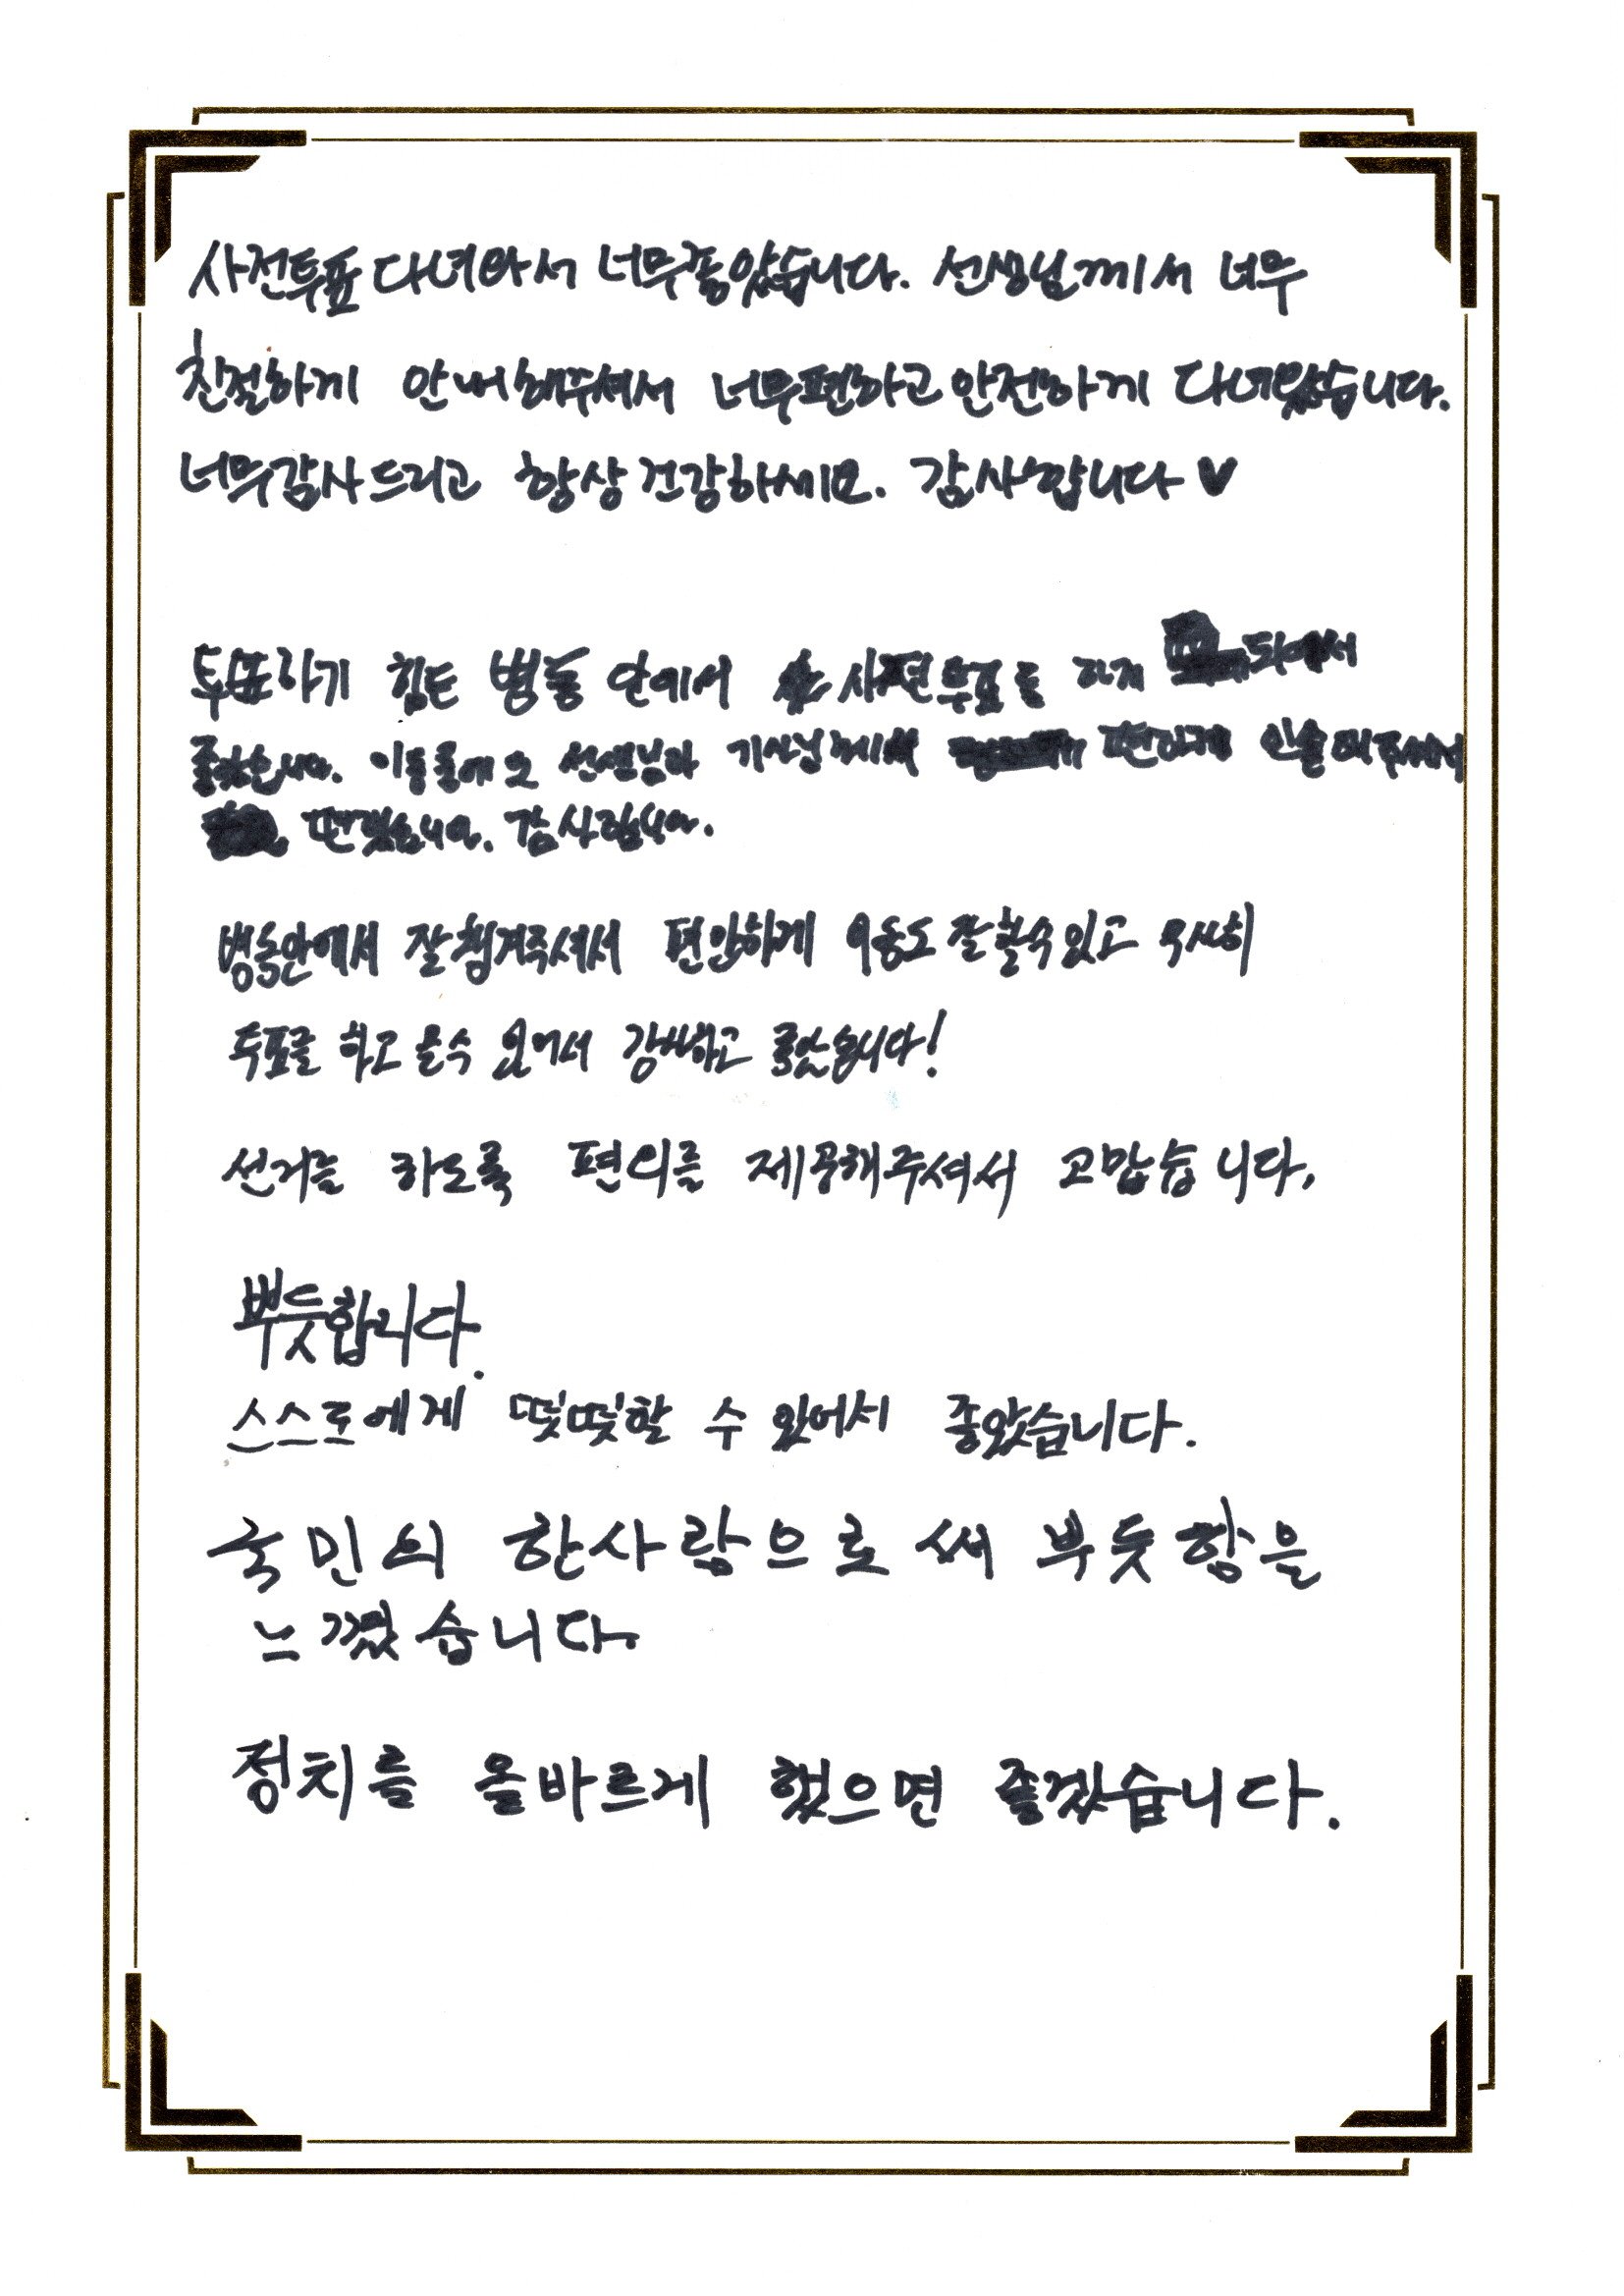 사전투표 다녀와서 너무좋았습니다. 선생님께서 너무
친절하게 안내해주셔서 너무편하고 안전하게 다녀왔습니다.
너무감사드리고 항상 건강하세요. 감사합니다♥
투표하기 힘든 병동 안에서 사전투표를 하게 되어서
좋았습니다. 기사님께서 편하게 인솔해주셔서
편했습니다. 감사합니다.
병동안에서 잘챙겨주셔서 편안하게 이동도 잘할수있고 무사히
투표를 하고 올수 있어서 감사하고 좋았습니다!
선거를 하도록 편의를 제공해주셔서 고맙습니다.
뿌듯합니다.
스스로에게 떳떳할 수 있어서 좋았습니다.
국민의 한사람으로써 뿌듯함을
느꼈습니다.
정치를 올바르게 했으면 좋겠습니다.